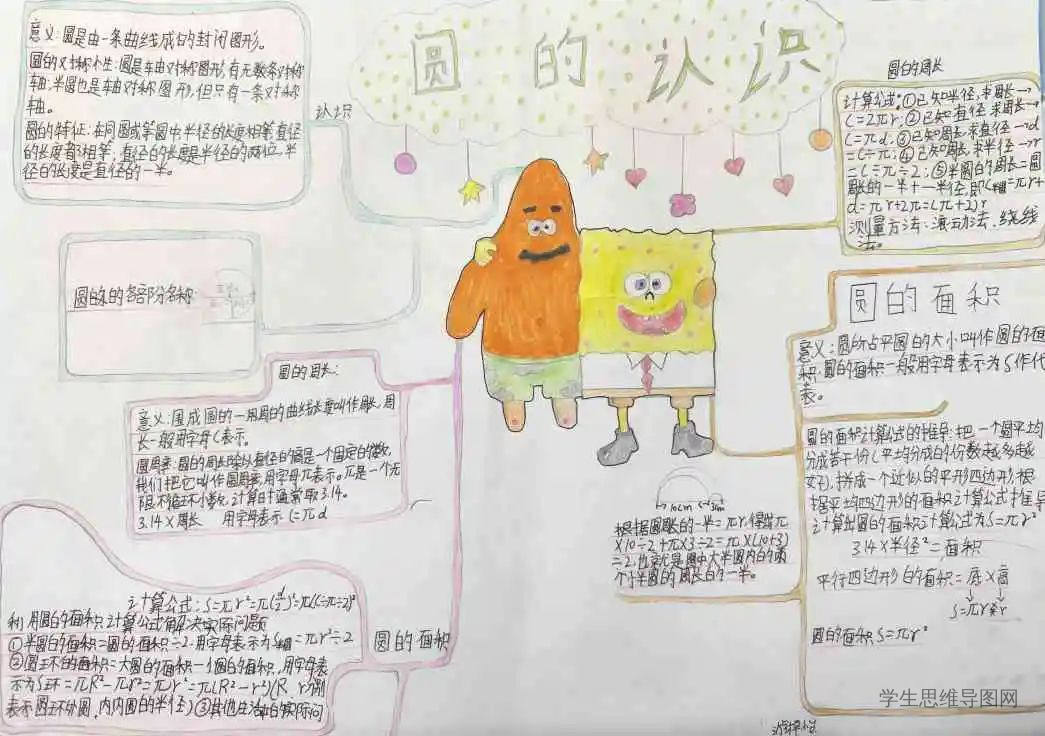 圆的认识
意义:圆是由一条曲线成的封闭图形。
圆的对称性:圆是轴对称图形,有无数条对称
轴,半圆也是轴对称图形,但只有一条对称
轴。
圆的特征:在同圆或等圆中半径的长度相等直径
的长度都相等,直径的长度是半径的两位,半
径的长度是直径的一半。
认识
圆的各部分名称
圆的周长:
意义:围成圆的一周的曲线长度叫作周长,周
长一般用字母C表示。
圆周率:圆的周长除以直径的商是一个固定的数,
我们把它叫作圆周率,用字母π表示。π是一个无
限不循环小数,计算时通常取3.14。
3.14×周长 用字母表示C=πd
计算公式:S=πr²=π(d/2)²=π(C÷π÷2)²
利用圆的面积计算公式解决实际问题
①半圆的面积=圆的面积÷2.用字母表示为S半圆=πr²÷2
②圆环的面积=大圆的面积一个圆的面积,用字母表
示为S环=πR²-πr²=π(R²-r²)(R、r分别
表示圆环外圆、内圆的半径)③其他生活中的实际问
圆的面积
圆的周长
计算公式:①已知半径,求周长→
C=2πr;②已知直径求周长→
C=πd;③已知周长求直径→d
=C÷π;④已知周长求半径→r
=C÷π÷2;⑤半圆的周长=圆
周长的一半+一半径,即C半圆=πr+
d=πr+2r=(π+2)r
测量方法:滚动法、绕线
法。
圆的面积
意义:圆所占平圆的大小叫作圆的面
积.圆的面积一般用字母表示为S作代
表。
圆的面积计算公式的推导:把一个圆平均
分成若干份(平均分成的份数越多越
好),拼成一个近似的平形四边形,根
据平均四边形的面积计算公式推导
计算出圆的面积计算公式为S=πr²
3.14×半径²=面积
平行四边形的面积=底×高
↓ ↓
S=πr×r
圆的面积S=πr²
10cm 3cm
根据圆周长的一半=πr,得出π
×10÷2+π×3÷2=π×(10+3)
÷2.也就是图中大半圆内的两
个小半圆的周长的一半。
学生思维导图网